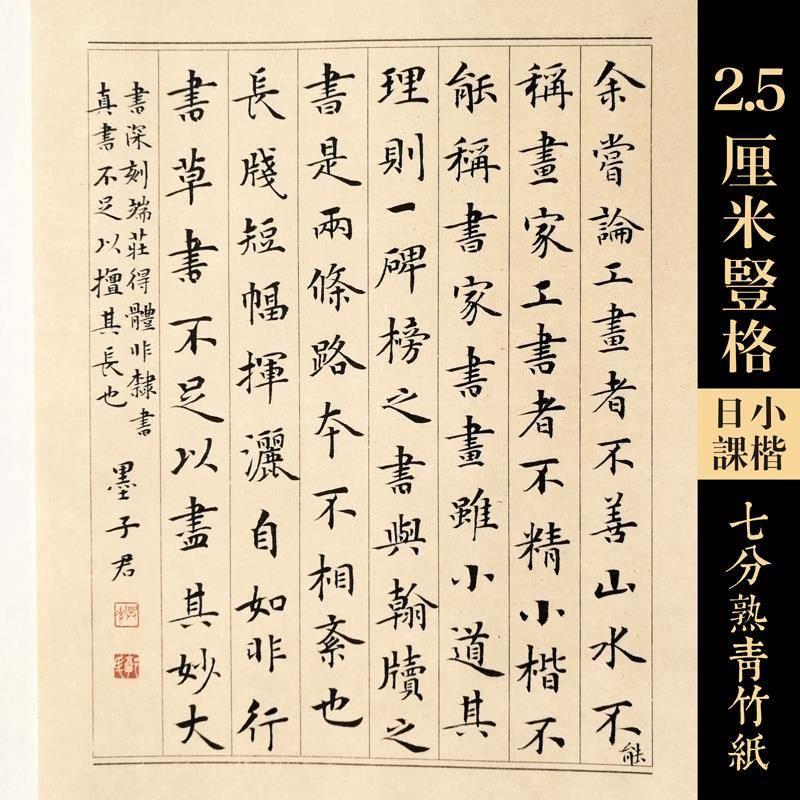 余嘗論工畫者不善山水不能
稱畫家工書者不精小楷不
能稱書家書畫雖小道其
理則一碑榜之書與翰牘之
書是兩條路本不相紊也
長牋短幅揮灑自如非行
書草書不足以盡其妙大
書深刻端莊得體非隸書
真書不足以擅其長也
墨子君
2.5厘米豎格
小楷
日課
七分熟青竹紙